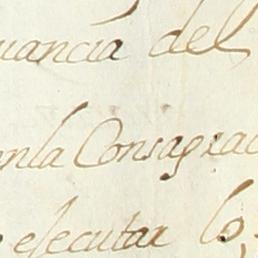 uancia del
anla Consagrac
executar lo